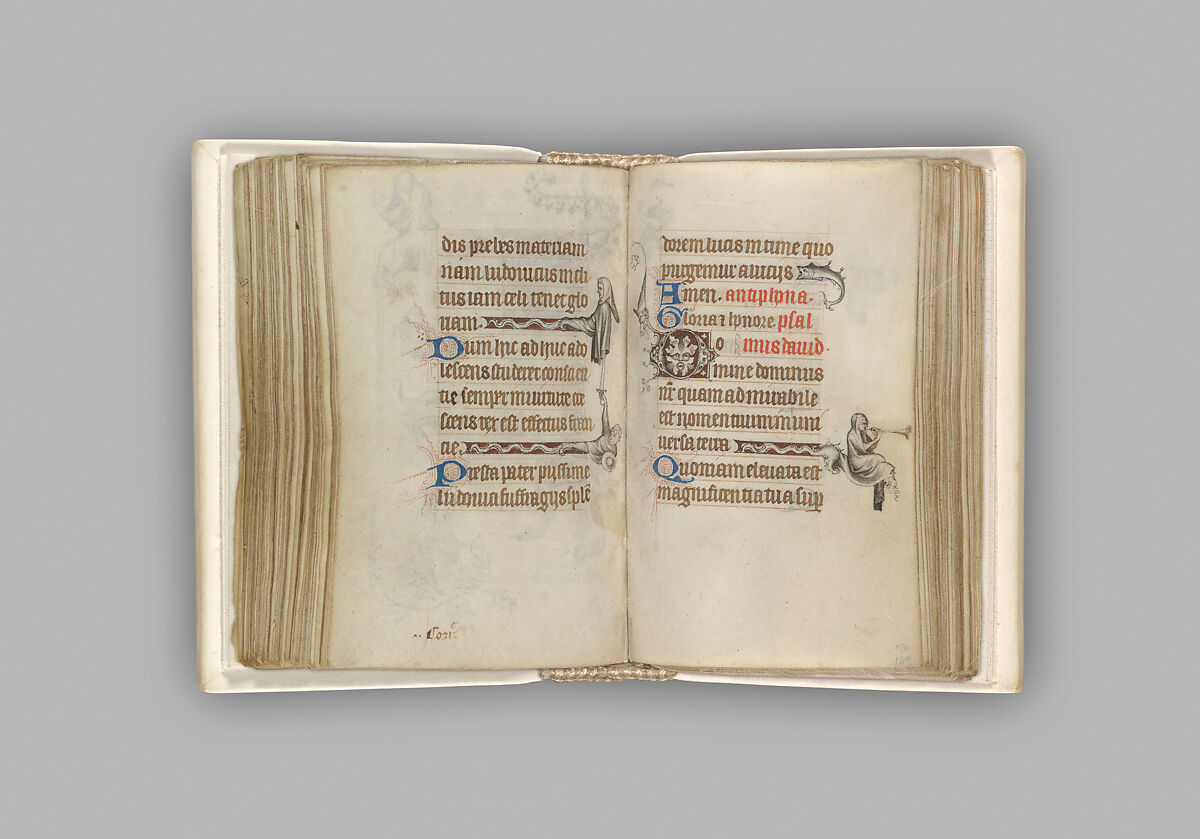 dis prebes materiam
nam ludovicus meli
tus iam celi tenet glo
riam.
Dum hic adhuc ado
lescens studeret conscien
tie semper in virtute cre
scens rex est effectus fran
cie.
Presta pater pijssime
ludovici suffragijs splē
dorem lucis intime quo
purgemur a vicijs
Amen. antiphona.
Gloria ⁊ honore psal
mus david.
Domine dominus
nr̄ quam admirabile
est nomen tuum in uni
versa terra
Quoniam elevata est
magnificentia tua sup